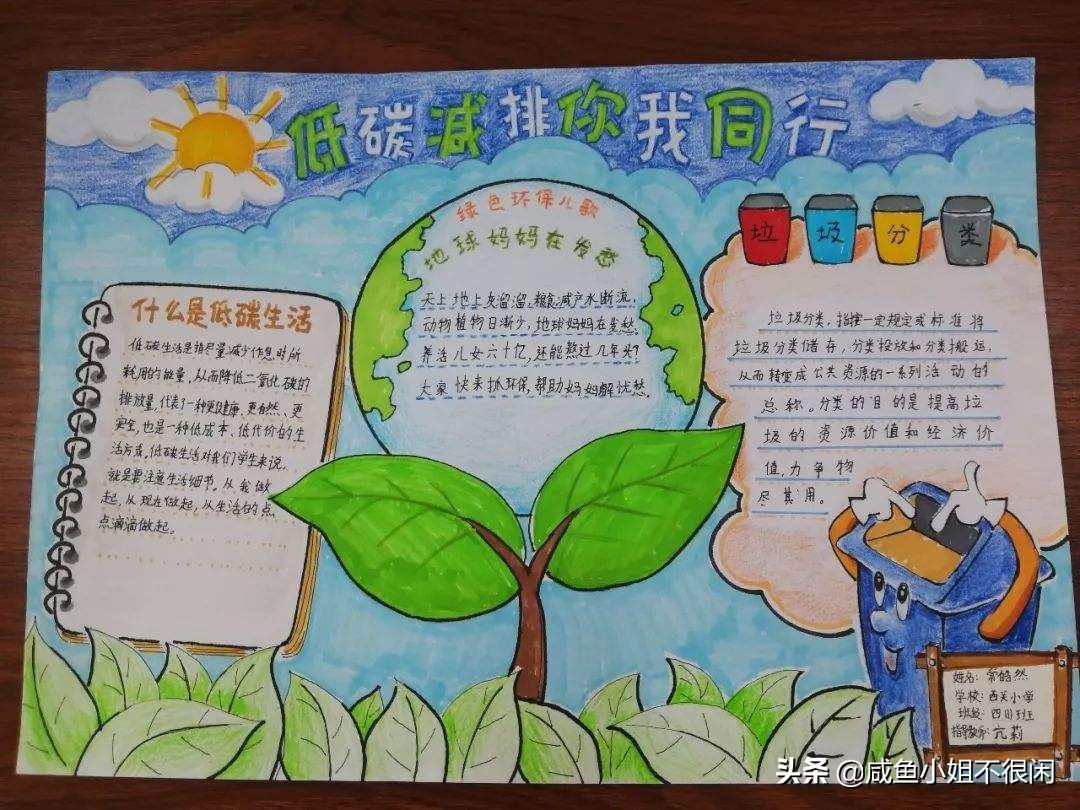 低碳减排你我同行
什么是低碳生活
低碳生活是指尽量减少作息时所
耗用的能量,从而降低二氧化碳的
排放量,代表了一种更健康、更自然、更
安全,也是一种低成本、低代价的生
活方式,低碳生活对我们学生来说,
就是要注意生活细节。从我做
起,从现在做起,从生活的点
点滴滴做起。
绿色环保儿歌
地球妈妈在发愁
天上地上灰溜溜,粮食减产水断流,
动物植物日渐少,地球妈妈在发愁。
养活儿女六十亿,还能熬过几年头?
大家快来抓环保,帮助妈妈解忧愁。
垃圾分类
垃圾分类,指按一定规定或标准将
垃圾分类储存,分类投放和分类搬运,
从而转变成公共资源的一系列活动的
总称。分类的目的是提高垃
圾的资源价值和经济价
值,力争物
尽其用。
姓名:常皓然
学校:西关小学
班级:四川班
指导教师:亢莉
头条 @咸鱼小姐不很闲